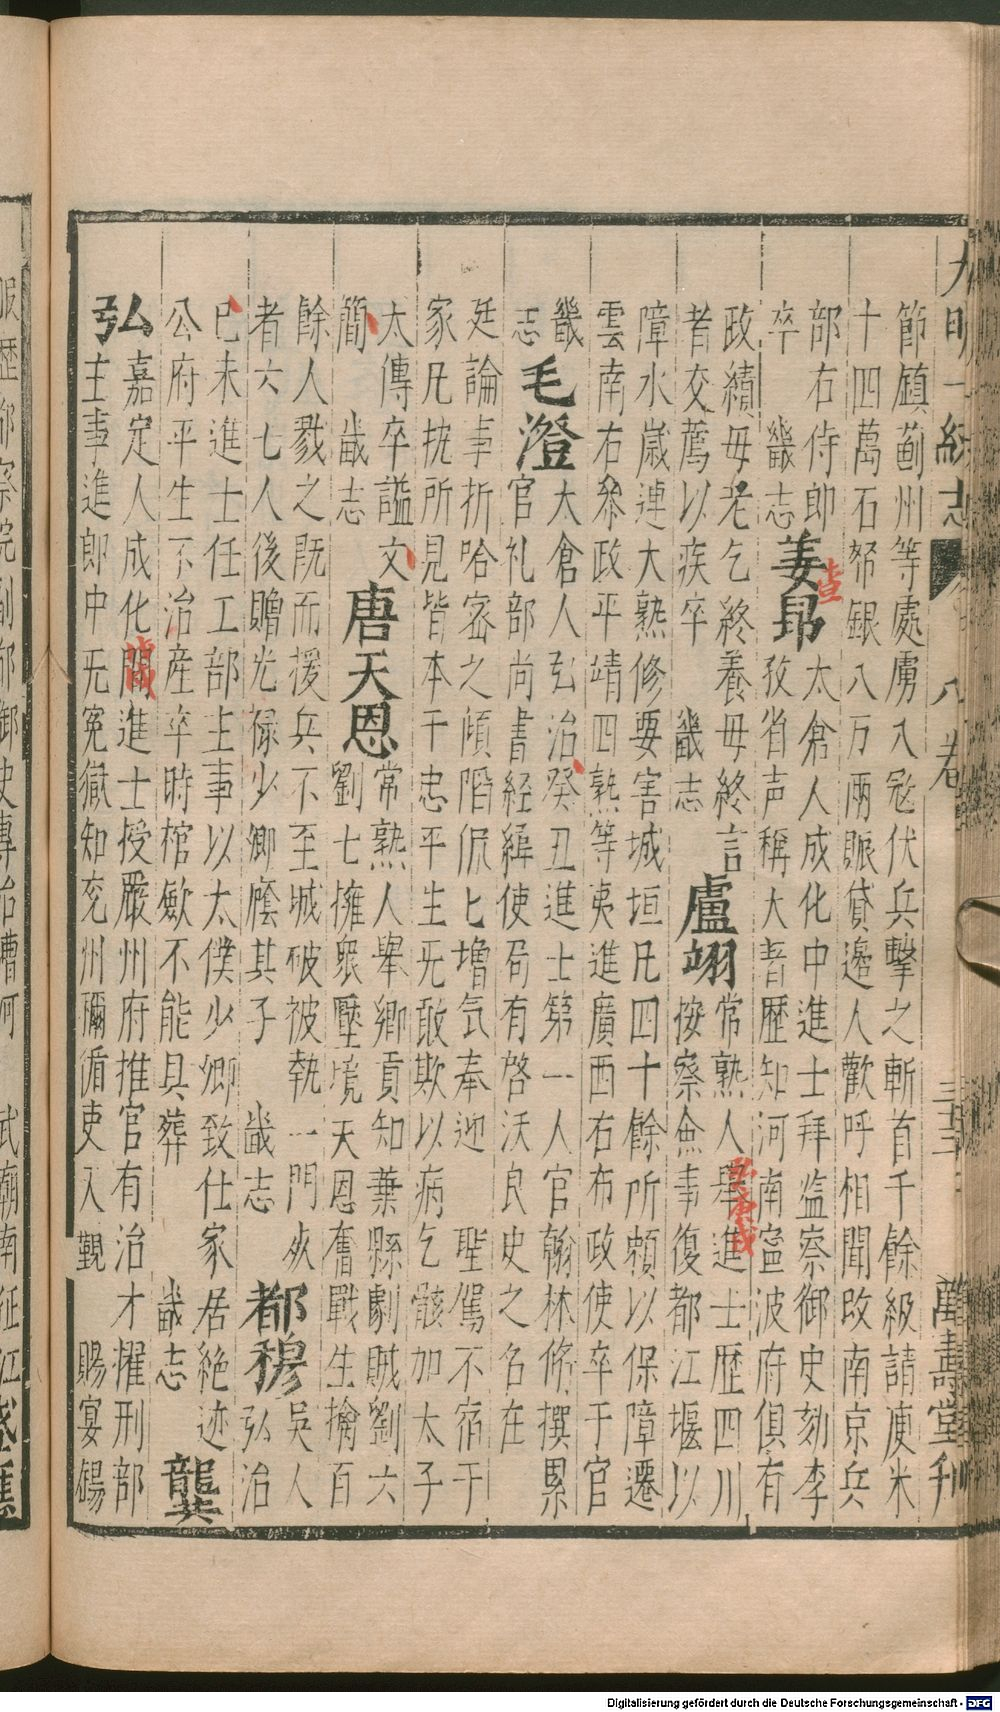 大明一統志 八卷 三十三 萬壽堂刋
節鎮薊州等處虜入㓂伏兵擊之斬首千餘級請庾米
十四萬石帑銀八万兩賑貸邊人歡呼相聞改南京兵
部右侍郎
卒 畿志
姜昂
查
太倉人成化中進士拜监察御史刻李
孜省声稱大著歷知河南寧波府俱有
政績母老乞終養母終言
者交薦以疾卒 畿志
盧翊
常熟人舉進士歷四川
弘庚戌
按察僉事復都江堰以
障水嵗連大熟修要害城垣凡四十餘所頼以保障遷
雲南右叅政平靖四熟等夷進廣西右布政使卒于官
畿
志
毛澄
太倉人弘治癸丑進士第一人官翰林修撰累
官礼部尚書経緯使局有啓沃良史之名在
廷論事折哈密之傾陷侃匕增気奉迎 聖駕不宿于
家凡抗所見皆本于忠平生旡敢欺以病乞骸加太子
太傳卒謚文
簡 畿志
唐天恩
常熟人舉鄉貢知葉縣劇賊劉六
劉七擁衆壓境天恩奮戰生擒百
餘人戮之既而援兵不至城破被執一門死
者六七人後贈光禄少卿廕其子 畿志
都穆
吳人
弘治
已未進士任工部主事以太僕少卿致仕家居絶迹
公府平生不治産卒時棺歛不能具葬 畿志
龔
弘
嘉定人成化間進士授嚴州府推官有治才擢刑部
主事進郎中旡冤獄知兖州獮循吏入覲 賜宴錫
服歷都察院副都御史專治漕河 武廟南征江
Digitalisierung gefördert durch die Deutsche Forschungsgemeinschaft - DFG